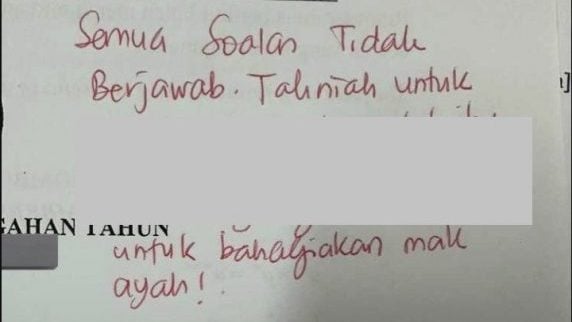 Semua Soalan Tidak
Berjawab. Tahniah untuk
GAHAN TAHUN
untuk bahagiakan mak
ayah!